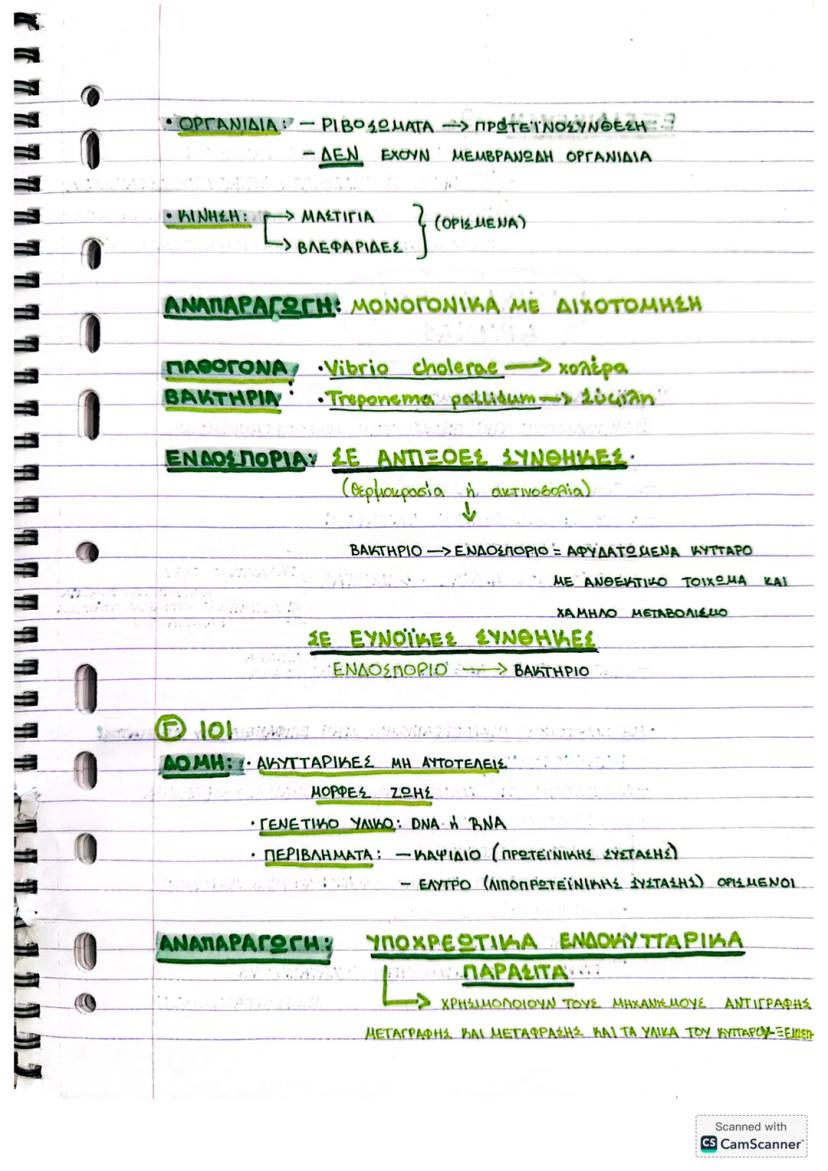 • ΟΡΓΑΝΙΔΙΑ: – ΡΙΒΟΣΩΜΑΤΑ → ΠΡΩΤΕΪΝΟΣΥΝΘΕΣΗ
– ΔΕΝ ΕΧΟΥΝ ΜΕΜΒΡΑΝΩΔΗ ΟΡΓΑΝΙΔΙΑ
• ΚΙΝΗΣΗ: → ΜΑΣΤΙΓΙΑ
→ ΒΛΕΦΑΡΙΔΕΣ } (ΟΡΙΣΜΕΝΑ)
ΑΝΑΠΑΡΑΓΩΓΗ: ΜΟΝΟΓΟΝΙΚΑ ΜΕ ΔΙΧΟΤΟΜΗΣΗ
ΠΑΘΟΓΟΝΑ • Vibrio cholerae → χολέρα
ΒΑΚΤΗΡΙΑ: • Treponema pallidum → Σύφιλη
ΕΝΔΟΣΠΟΡΙΑ: ΣΕ ΑΝΤΙΞΟΕΣ ΣΥΝΘΗΚΕΣ.
(θερμοκρασία ή ακτινοβολία)
↓
ΒΑΚΤΗΡΙΟ → ΕΝΔΟΣΠΟΡΙΟ = ΑΦΥΔΑΤΩΜΕΝΑ ΚΥΤΤΑΡΟ
ΜΕ ΑΝΘΕΚΤΙΚΟ ΤΟΙΧΩΜΑ ΚΑΙ
ΧΑΜΗΛΟ ΜΕΤΑΒΟΛΙΣΜΟ
ΣΕ ΕΥΝΟΪΚΕΣ ΣΥΝΘΗΚΕΣ
ΕΝΔΟΣΠΟΡΙΟ → ΒΑΚΤΗΡΙΟ
Γ ΙΟΙ
ΔΟΜΗ: • ΑΚΥΤΤΑΡΙΚΕΣ ΜΗ ΑΥΤΟΤΕΛΕΙΣ
ΜΟΡΦΕΣ ΖΩΗΣ
• ΓΕΝΕΤΙΚΟ ΥΛΙΚΟ: DNA ή RNA
• ΠΕΡΙΒΛΗΜΑΤΑ: – ΚΑΨΙΔΙΟ (ΠΡΩΤΕΪΝΙΚΗΣ ΣΥΣΤΑΣΗΣ)
– ΕΛΥΤΡΟ (ΛΙΠΟΠΡΩΤΕΪΝΙΚΗΣ ΣΥΣΤΑΣΗΣ) ΟΡΙΣΜΕΝΟΙ
ΑΝΑΠΑΡΑΓΩΓΗ: ΥΠΟΧΡΕΩΤΙΚΑ ΕΝΔΟΚΥΤΤΑΡΙΚΑ
ΠΑΡΑΣΙΤΑ
→ ΧΡΗΣΙΜΟΠΟΙΟΥΝ ΤΟΥΣ ΜΗΧΑΝΙΣΜΟΥΣ ΑΝΤΙΓΡΑΦΗΣ
ΜΕΤΑΓΡΑΦΗΣ ΚΑΙ ΜΕΤΑΦΡΑΣΗΣ ΚΑΙ ΤΑ ΥΛΙΚΑ ΤΟΥ ΚΥΤΤΑΡΟΥ
Scanned with
CS CamScanner